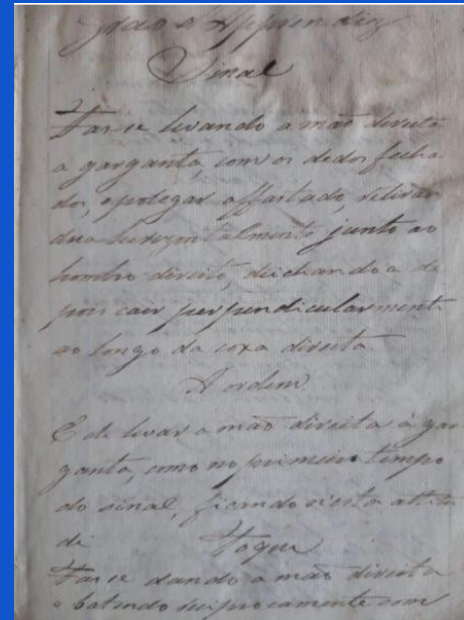 Grao d'Apprendiz
Sinal
Fas se levando a mão direita
a garganta, com os dedos fecha
dos, e polegar affastado, retiran
doa horizontalmente junto ao
hombro direito, deichando a de
pois cair perpendicularmente
ao longo da coxa direita
A ordem
E de levar a mão direita á gar
ganta, como no primeiro tempo
do sinal, ficando n'esta attitu
de
Toque
Fas se dando a mão direita
e batendo reciprocamente com